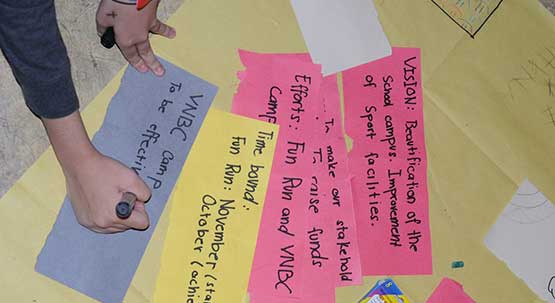 VISION: Beautification of the
School campus. Improvement
of Sport facilities.
To make our stakehold
To raise funds
Efforts: Fun Run and VNBC
Camp
Time bound:
Fun Run: November (sta
October (achie
VNBC Camp
To be effectiv